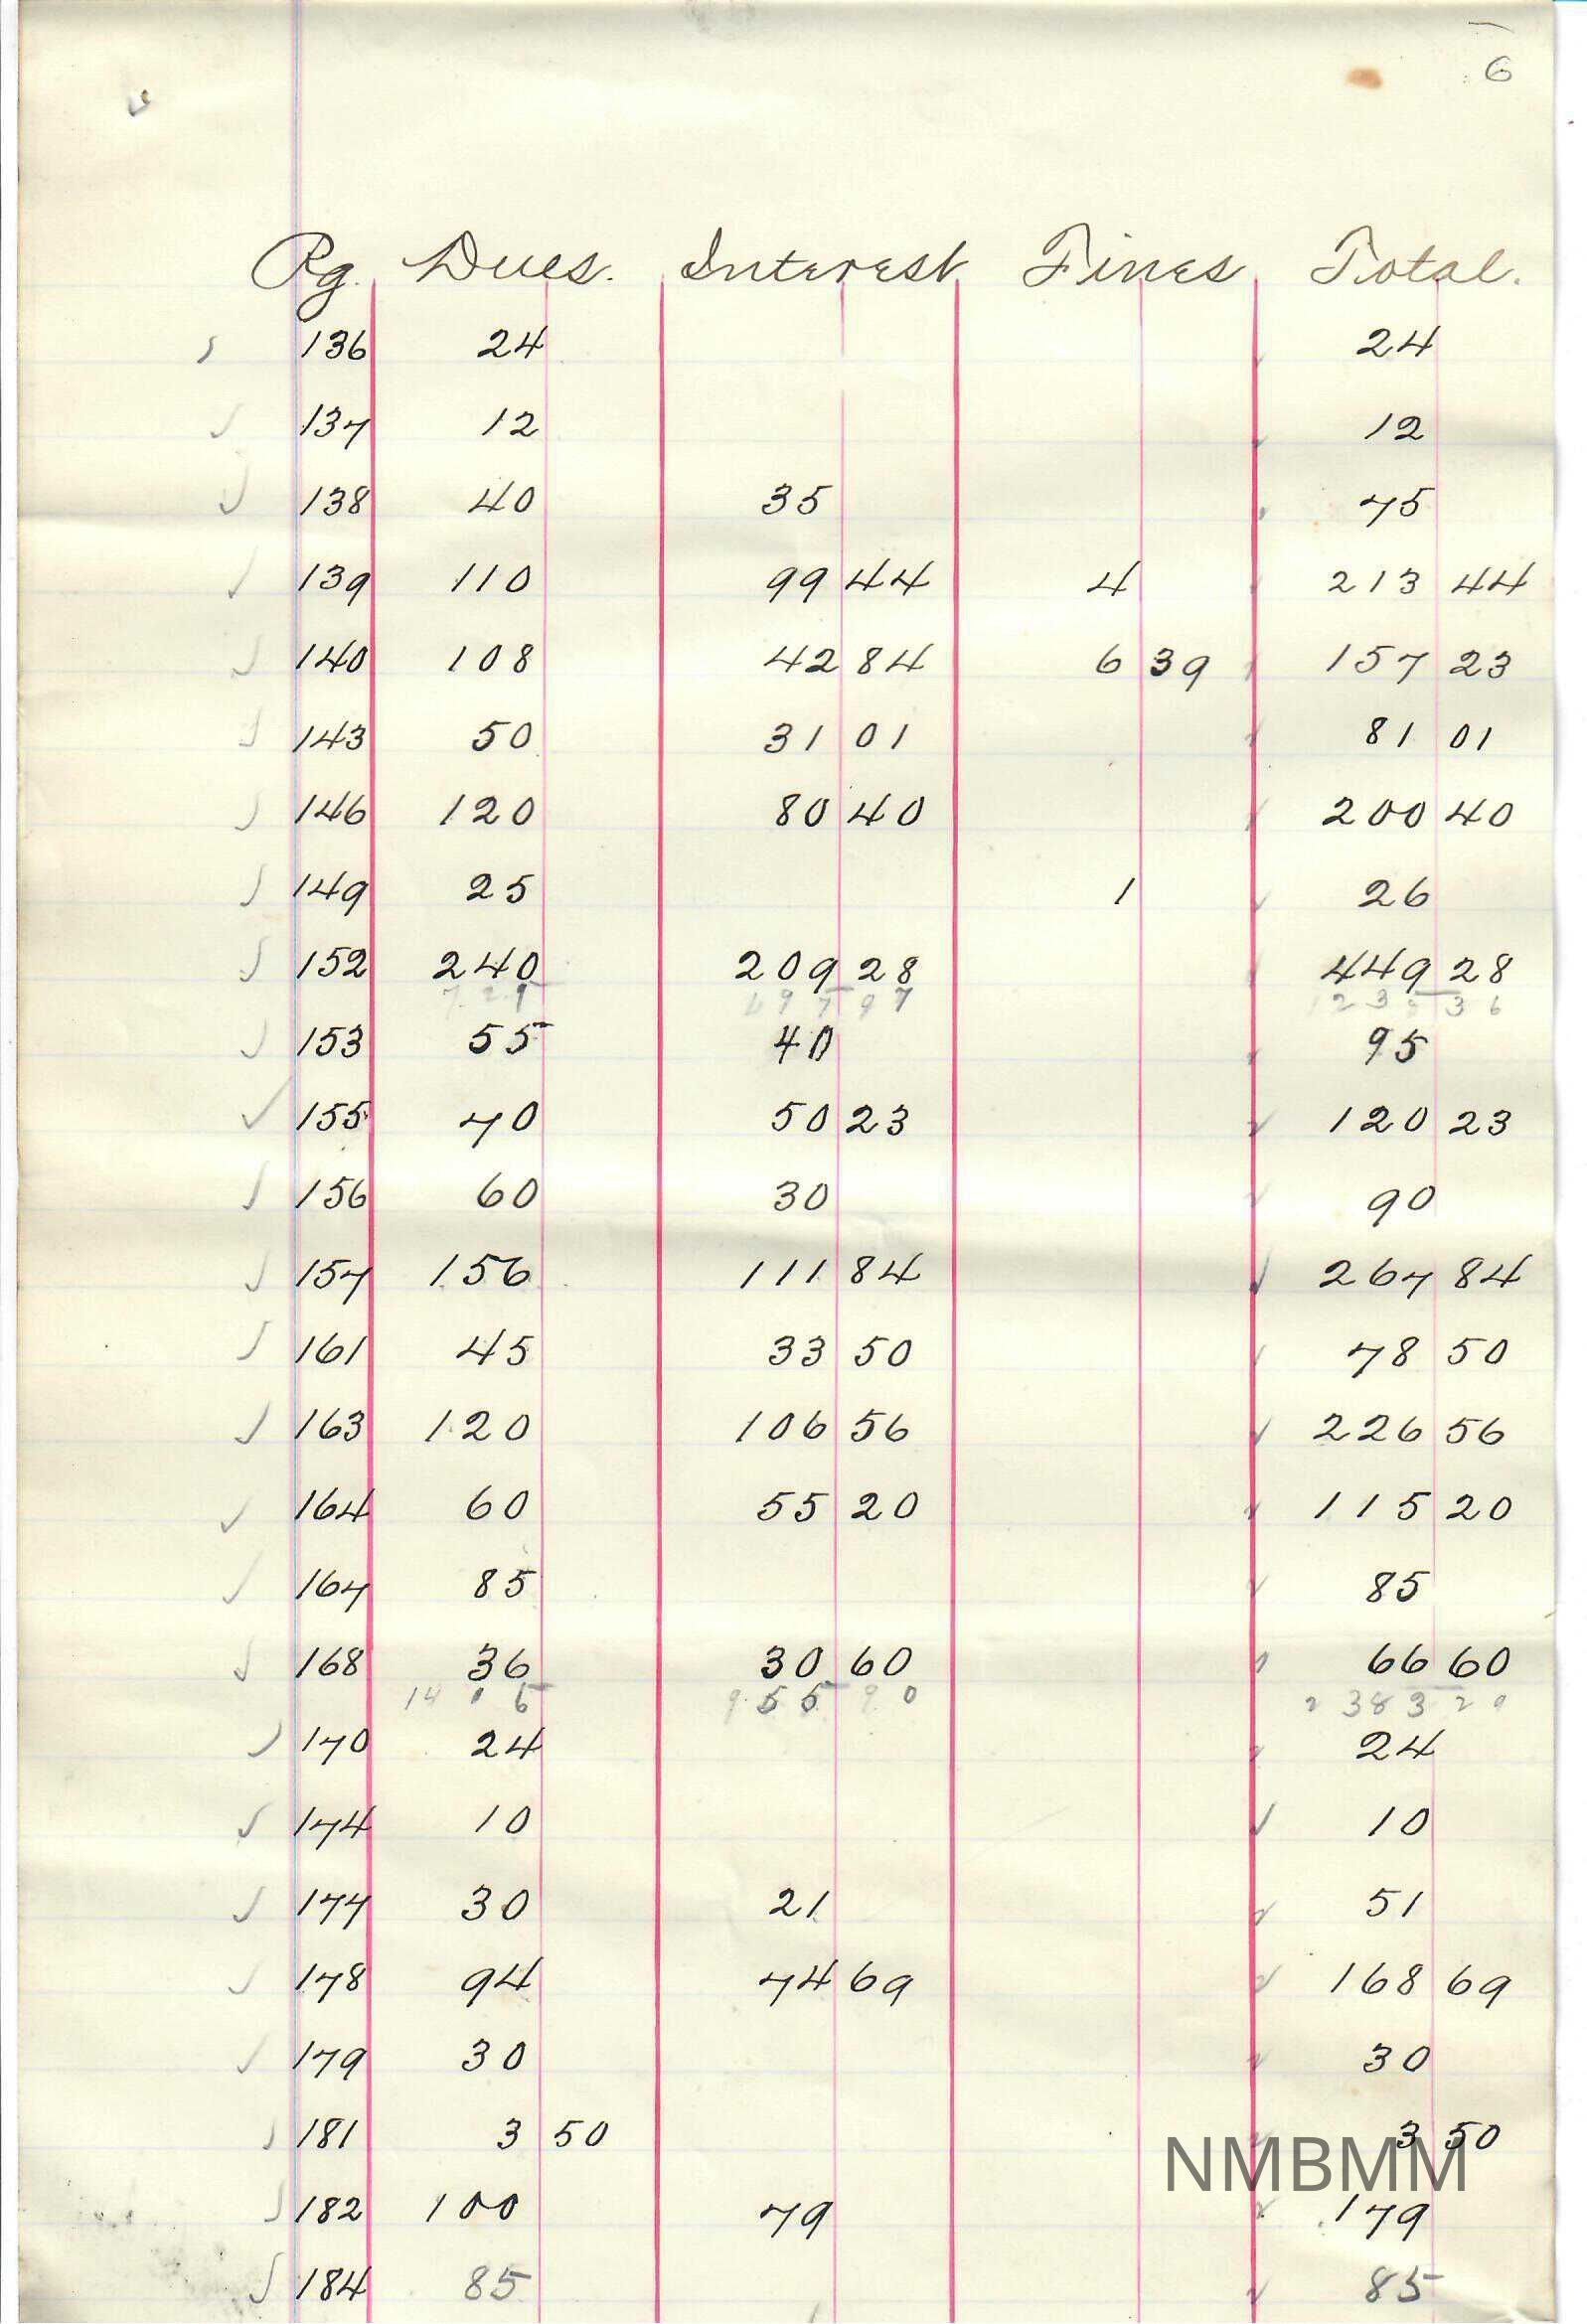 6
Pg. Dues. Interest Fines Total.
136 24 24
137 12 12
138 40 35 75
139 110 99 44 4 213 44
140 108 42 84 6 39 157 23
143 50 31 01 81 01
146 120 80 40 200 40
149 25 1 26
152 240 209 28 449 28
729 497 97 123 36
153 55 40 95
155 70 50 23 120 23
156 60 30 90
157 156 111 84 267 84
161 45 33 50 78 50
163 120 106 56 226 56
164 60 55 20 115 20
167 85 85
168 36 30 60 66 60
14 6 955 90 2383 20
170 24 24
174 10 10
177 30 21 51
178 94 74 69 168 69
179 30 30
181 3 50 3 50
NMBMM
182 100 79 179
184 85 85